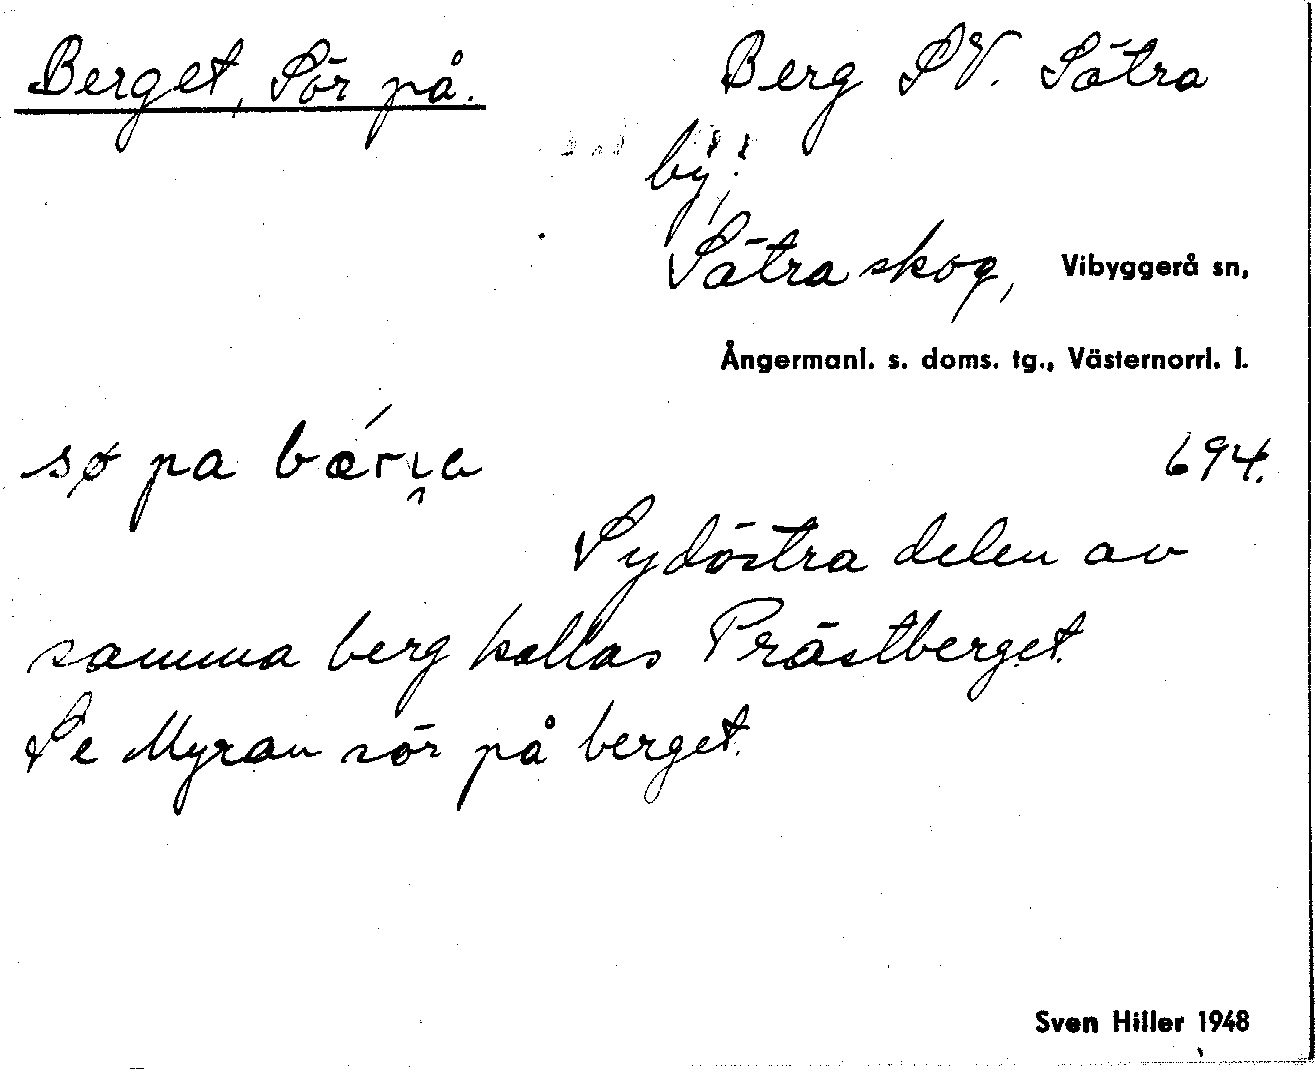 Berget, Sör på.
Berg SV. Sätra
by!
Sätra skog, Vibyggerå sn,
Ångermanl. s. doms. tg., Västernorrl. l.
sø pa
694.
Sydöstra delen av
samma berg kallas Prästberget.
Se Myran sör på berget.
Sven Hiller 1948